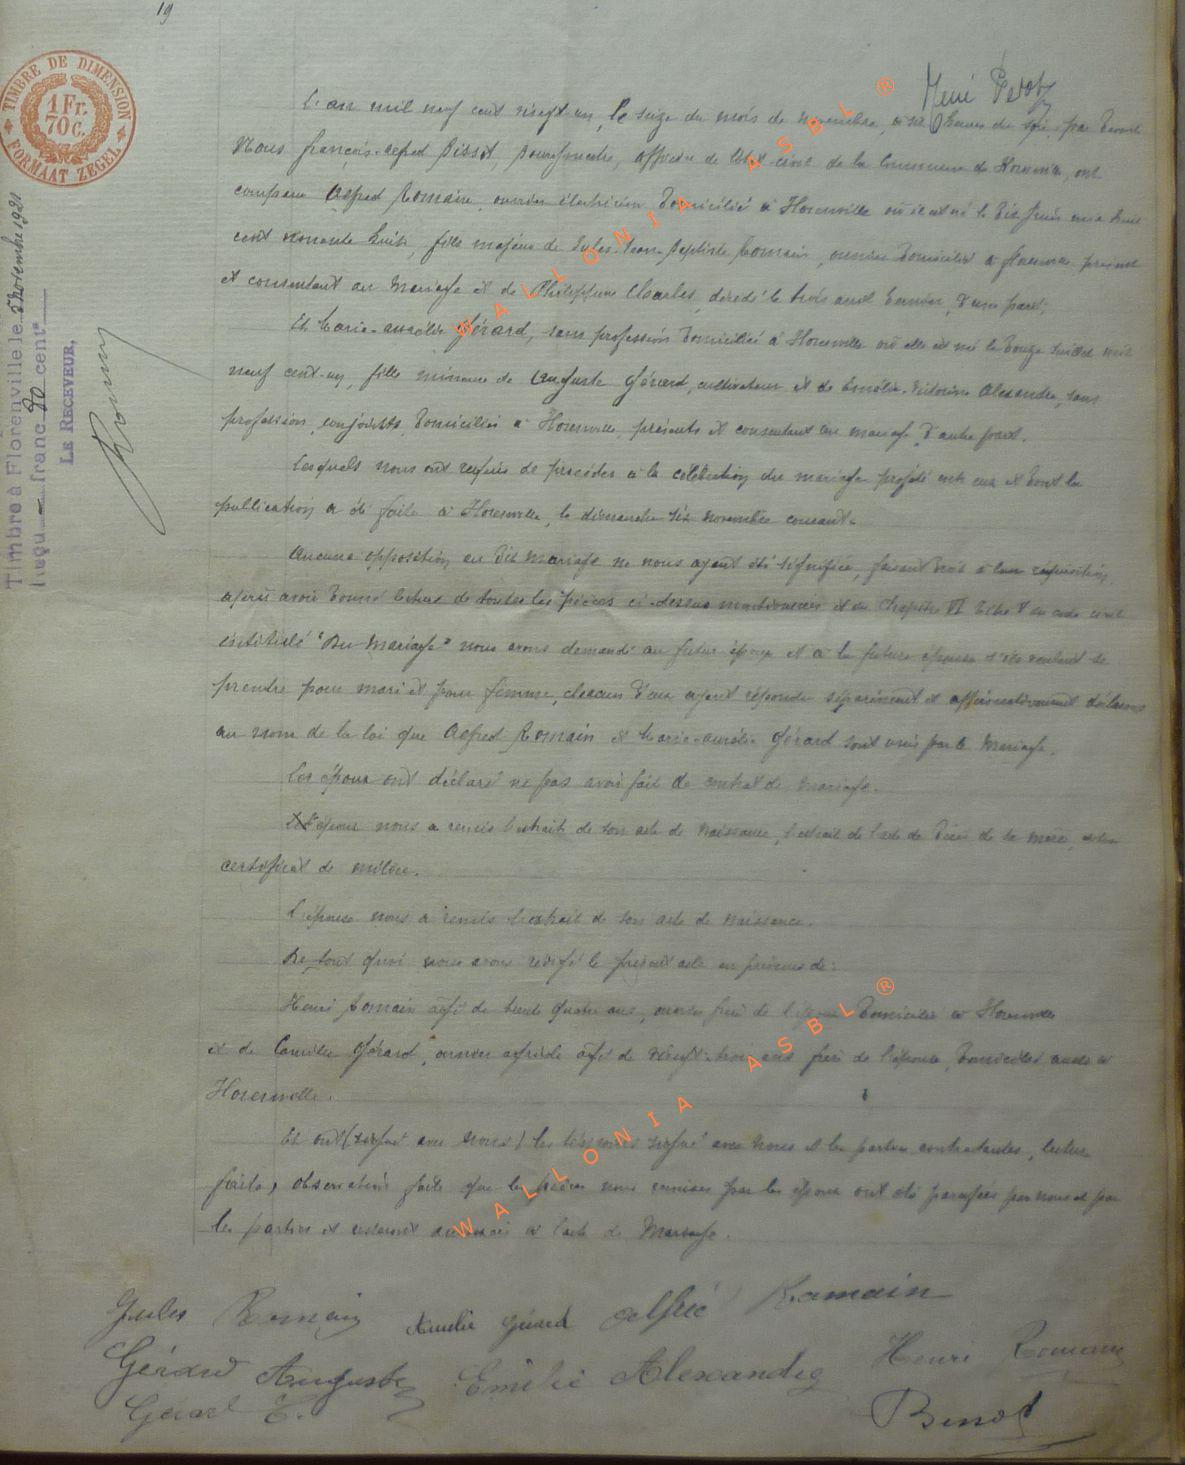 19
TIMBRE DE DIMENSION
1 Fr. 70 C.
FORMAAT ZEGEL
Timbré à Florenville le novembre 1921
franc cent
LE RECEVEUR,
L'an mil neuf cent vingt-un, le seize du mois de novembre, à heures du par devant
Nous françois-alfred Bissot, Bourgmestre, officier de l'état-civil de la Commune de ont
comparu Alfred Romain, ouvrier électricien domicilié à où il est né le dix juin mil huit
cent nonante huit, fils majeur de Jules-Jean-Baptiste Romain, ouvrier domicilié à présent
et consentant au mariage et de Philippine Charles, décédé le trois août dernier, d'une part,
Et Marie-aurélie Gérard, sans profession domiciliée à où elle est né le douze juillet mil
neuf cent-un, fille mineure de Auguste Gérard, cultivateur et de Emélie-Victorine Alexandre, sans
profession, conjoints, domiciliés à présents et consentant au mariage, d'autre part.
Lesquels nous ont requis de procéder à la célébration du mariage projeté entr eux et dont la
publication a été faite à le dimanche six novembre courant.
Aucune opposition au dit mariage ne nous ayant été signifiée, faisant droit à leur réquisition,
après avoir donné lecture de toutes les pièces ci-dessus mentionnées et du chapitre VI titre V du code civil
intitulé "Du Mariage" nous avons demandé au futur époux et à la future épouse s'ils veulent se
prendre pour mari et pour femme, chacun d'eux ayant répondu séparément et affirmativement déclarons
au nom de la loi que Alfred Romain et Marie-aurélie Gérard sont unis par le mariage.
Les époux ont déclaré ne pas avoir fait de contrat de mariage.
L'époux nous a remis l'extrait de son acte de naissance, l'extrait de l'acte de décès de sa mère,
certificat de milice.
L'épouse nous a remis l'extrait de son acte de naissance.
De tout quoi nous avons rédigé le présent acte en présence de:
Henri Romain âgé de trente quatre ans, ouvrier frère de l'époux domicilié à
et de Camille Gérard, ouvrier agricole âgé de vingt-trois ans frère de l'épouse, domiciliés à

Et ont (signé avec nous) les témoins signé avec nous et les parties contractantes, lecture
faite, observation faite que les pièces nous remises par les époux ont été paraphées par nous et par
les parties et resteront annexées à l'acte de Mariage.
WALLONIA ASBL ®
WALLONIA ASBL ®
Jules Romain Aurelie Gérard Alfred Romain
Gérard Auguste Emélie Alexandre Henri Romain
Gérard C. Bissot